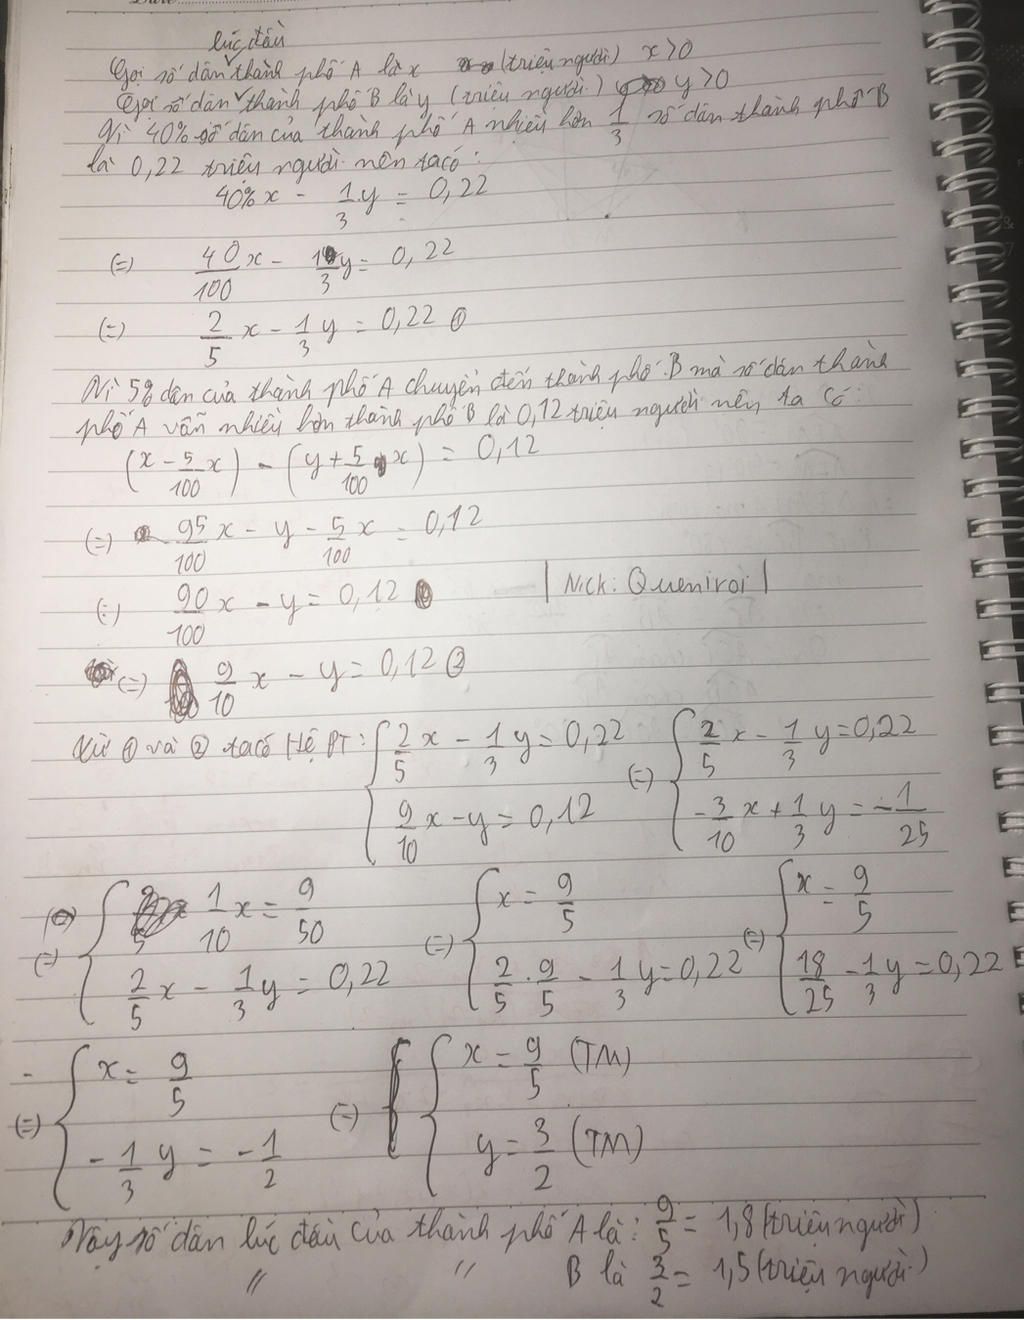 lúc đầu
Gọi số dân thành phố A là x (triệu người) x>0
Gọi số dân thành phố B là y (triệu người) y>0
Vì 40% số dân của thành phố A nhiều hơn 1/3 số dân thành phố B
là 0,22 triệu người nên ta có:
40%x - 1/3 y = 0,22
(=) 40/100 x - 1/3 y = 0,22
(=) 2/5 x - 1/3 y = 0,22 ①
Vì 5% dân của thành phố A chuyển đến thành phố B mà số dân thành
phố A vẫn nhiều hơn thành phố B là 0,12 triệu người nên ta có:
(x - 5/100 x) - (y + 5/100 x) = 0,12
(=) 95/100 x - y - 5/100 x = 0,12
(=) 90/100 x - y = 0,12
| Nick: Queniroi |
(=) 9/10 x - y = 0,12 ②
Từ ① và ② ta có Hệ PT: { 2/5 x - 1/3 y = 0,22 (=) { 2/5 x - 1/3 y = 0,22
9/10 x - y = 0,12 -3/10 x + 1/3 y = -1/25
(=) { 1/10 x = 9/50 (=) { x = 9/5 (=) { x = 9/5
2/5 x - 1/3 y = 0,22 2/5 . 9/5 - 1/3 y = 0,22 18/25 - 1/3 y = 0,22
(=) { x = 9/5 (=) { x = 9/5 (TM)
-1/3 y = -1/2 y = 3/2 (TM)
Vậy số dân lúc đầu của thành phố A là: 9/5 = 1,8 (triệu người)
" " B là 3/2 = 1,5 (triệu người)